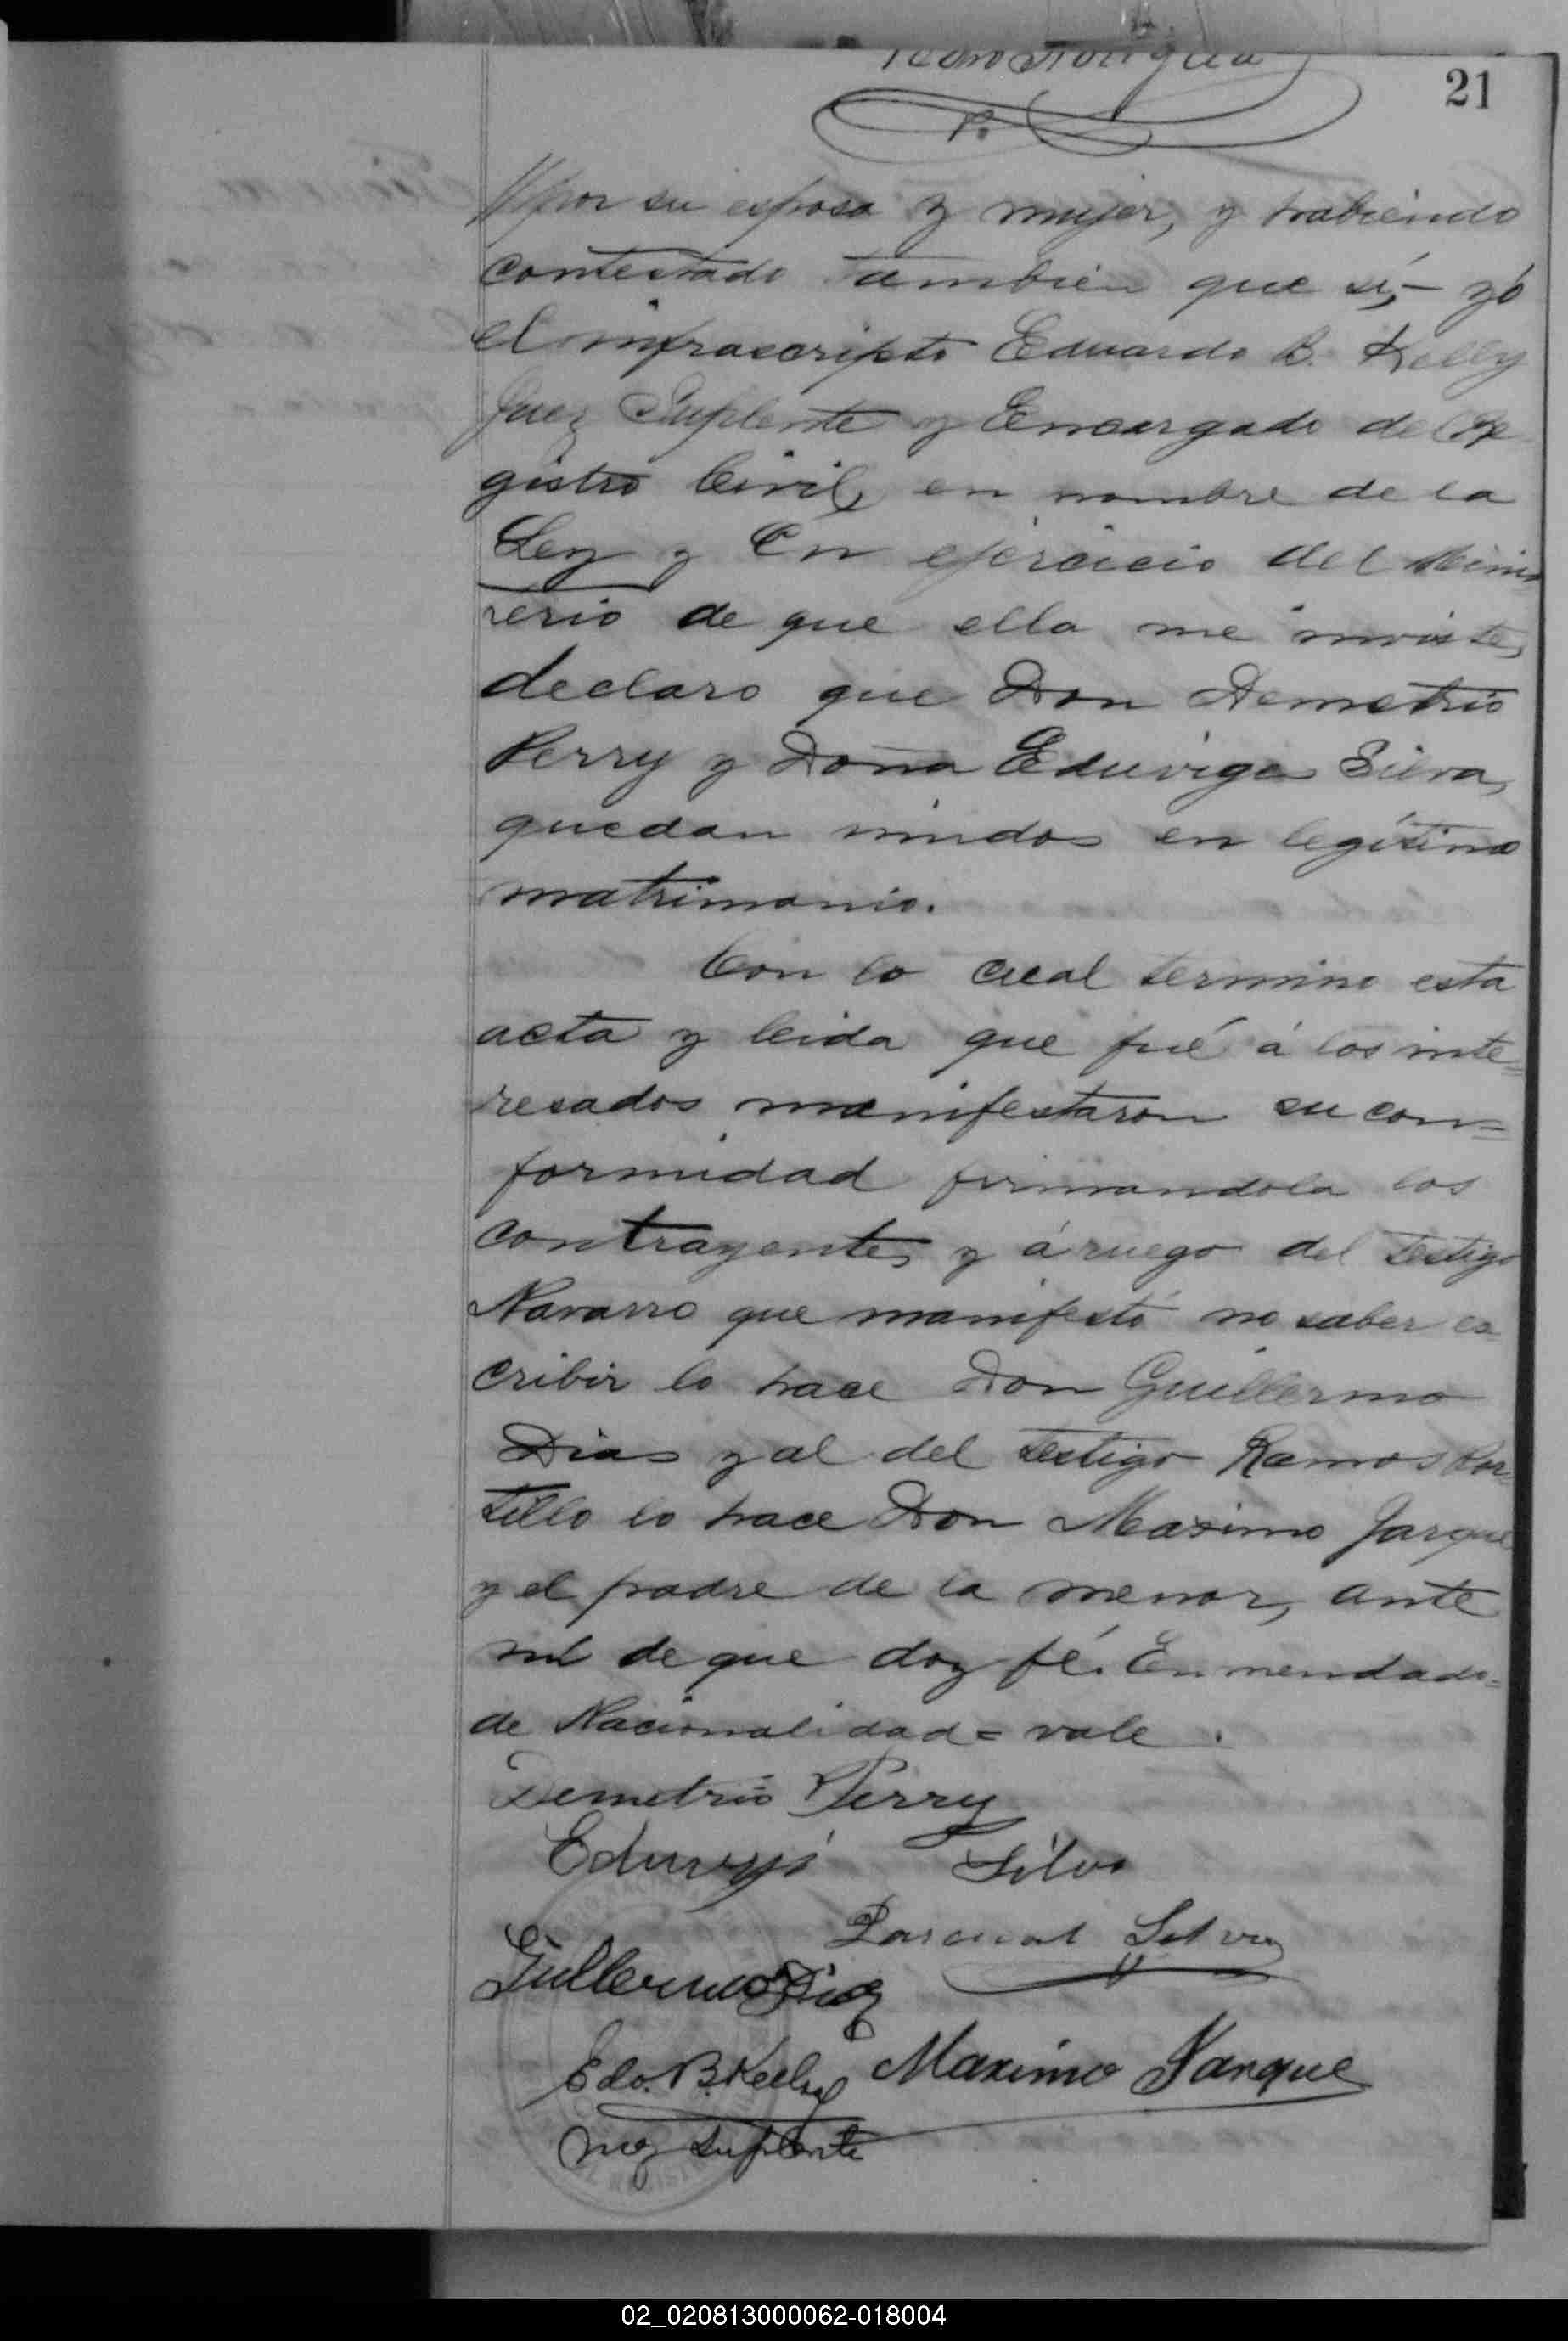 21
P.
//por su esposa y mujer, y habiendo
contestado tambien que sí,- yó
el infrascripto Eduardo B. Kelly
Juez Suplente y Encargado del Re
gistro Civil, en nombre de la
Ley y En ejercicio del Minis
terio de que ella me inviste,
declaro que Don Demetrio
Perry y Doña Eduviges Silva,
quedan unidos en legítimo
matrimonio.
Con lo cual termino esta
acta y leida que fué á los inte=
resados manifestaron su con=
formidad firmandola los
contrayentes y á ruego del testigo
Navarro que manifestó no saber es
cribir lo hace Don Guillermo
Dias y al del testigo Ramos Por=
tillo lo hace Don Maximo Jarque
y el padre de la menor, ante
mi de que doy fé. Enmendado=
de Nacionalidad= vale.
Demetrio Perry
Eduvigis Silva
Pascual Silva
Guillermo Diaz
Edo. B. Kelly Maximo Jarque
Juez Suplente
02_020813000062-018004